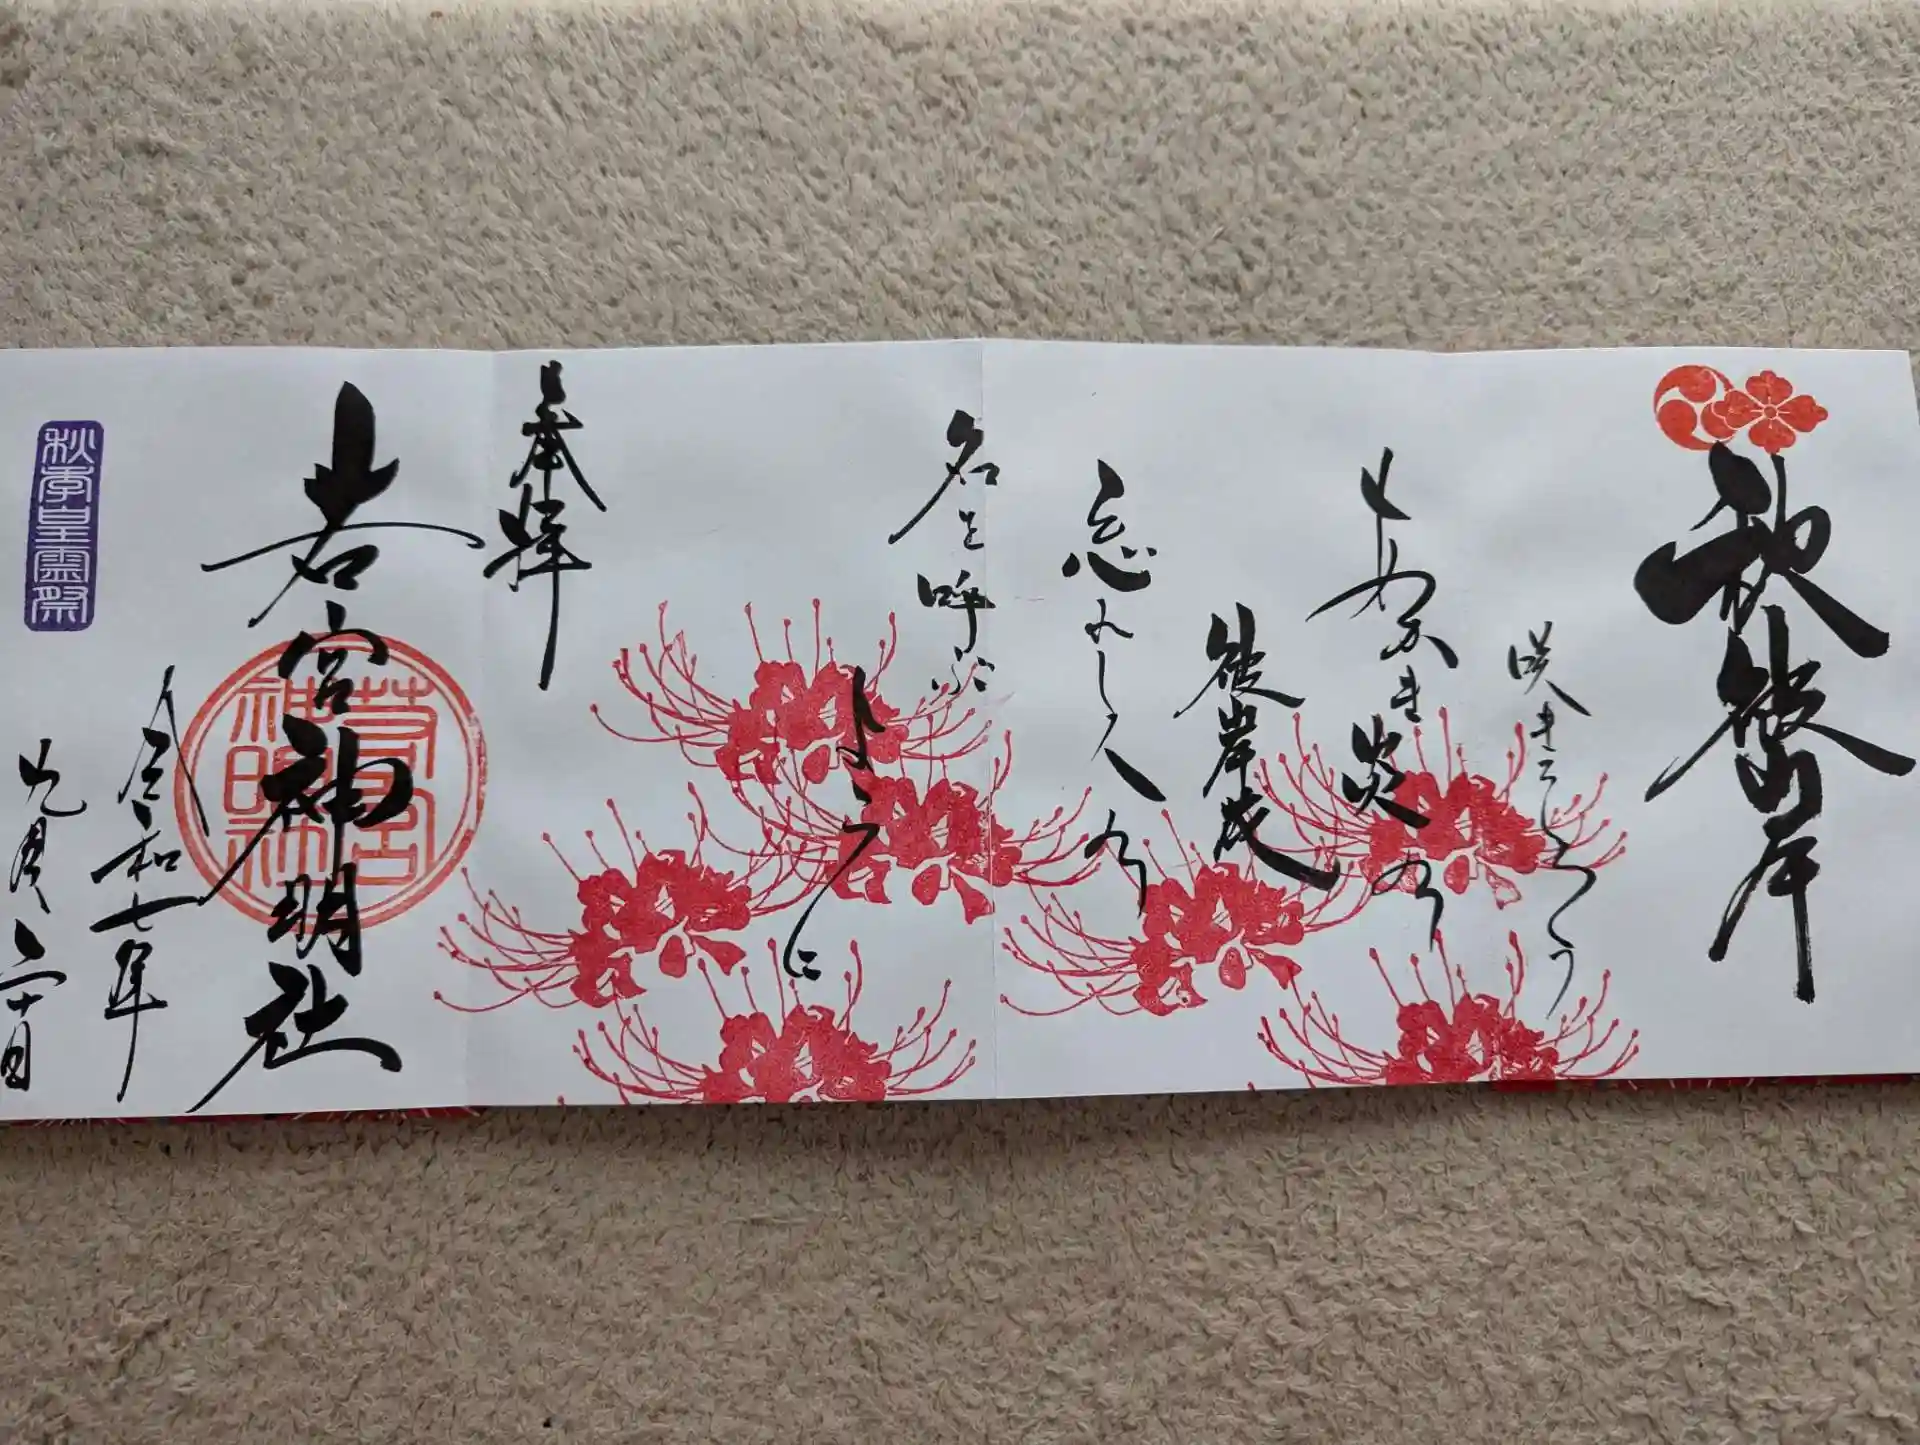 秋彼岸
咲きそろう
き炎の
彼岸花
忘れし人の
名を呼ぶ
ように
奉拝
若宮神明社
若宮神明社
令和七年
九月二十日
秋季皇霊祭